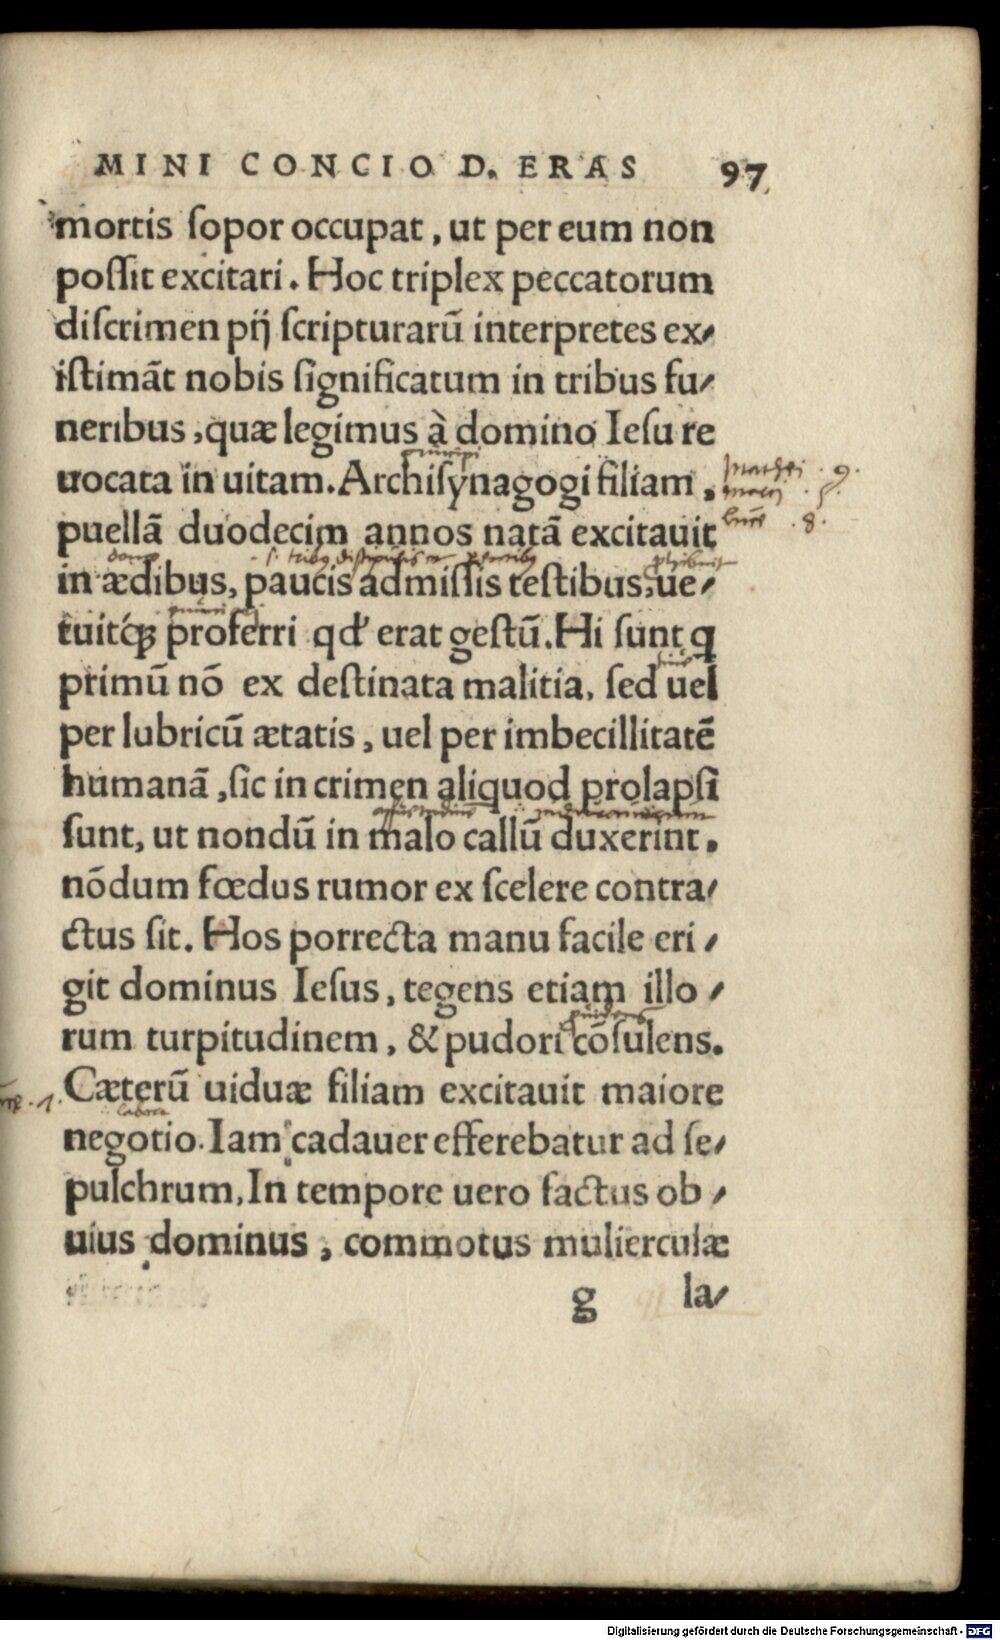 MINI CONCIO D. ERAS 97
mortis ſopor occupat, ut per eum non
poſſit excitari. Hoc triplex peccatorum
diſcrimen pij ſcripturarū interpretes ex⸗
iſtimāt nobis ſignificatum in tribus fu⸗
neribus, quæ legimus à domino Ieſu re
principi
uocata in uitam. Archiſynagogi filiam,
Mathei . 9.
marci . 5.
luce . 8.
puellā duodecim annos natā excitauit
in ædibus, paucis admiſſis teſtibus, ue⸗
tuitq́ꝫ proferri qd' erat geſtū. Hi ſunt q
primū nō ex deſtinata malitia, ſed uel
per lubricū ætatis, uel per imbecillitatē
humanā, ſic in crimen aliquod prolapſi
ſunt, ut nondū in malo callū duxerint.
nōdum fœdus rumor ex ſcelere contra⸗
ctus ſit. Hos porrecta manu facile eri⸗
git dominus Ieſus, tegens etiam illo⸗
rum turpitudinem, & pudori cōſulens.
Cæterū uiduæ filiam excitauit maiore
labore
negotio. Iam cadauer efferebatur ad ſe⸗
pulchrum, In tempore uero factus ob⸗
uius dominus, commotus mulierculæ
g la⸗
Digitalisierung gefördert durch die Deutsche Forschungsgemeinschaft - DFG